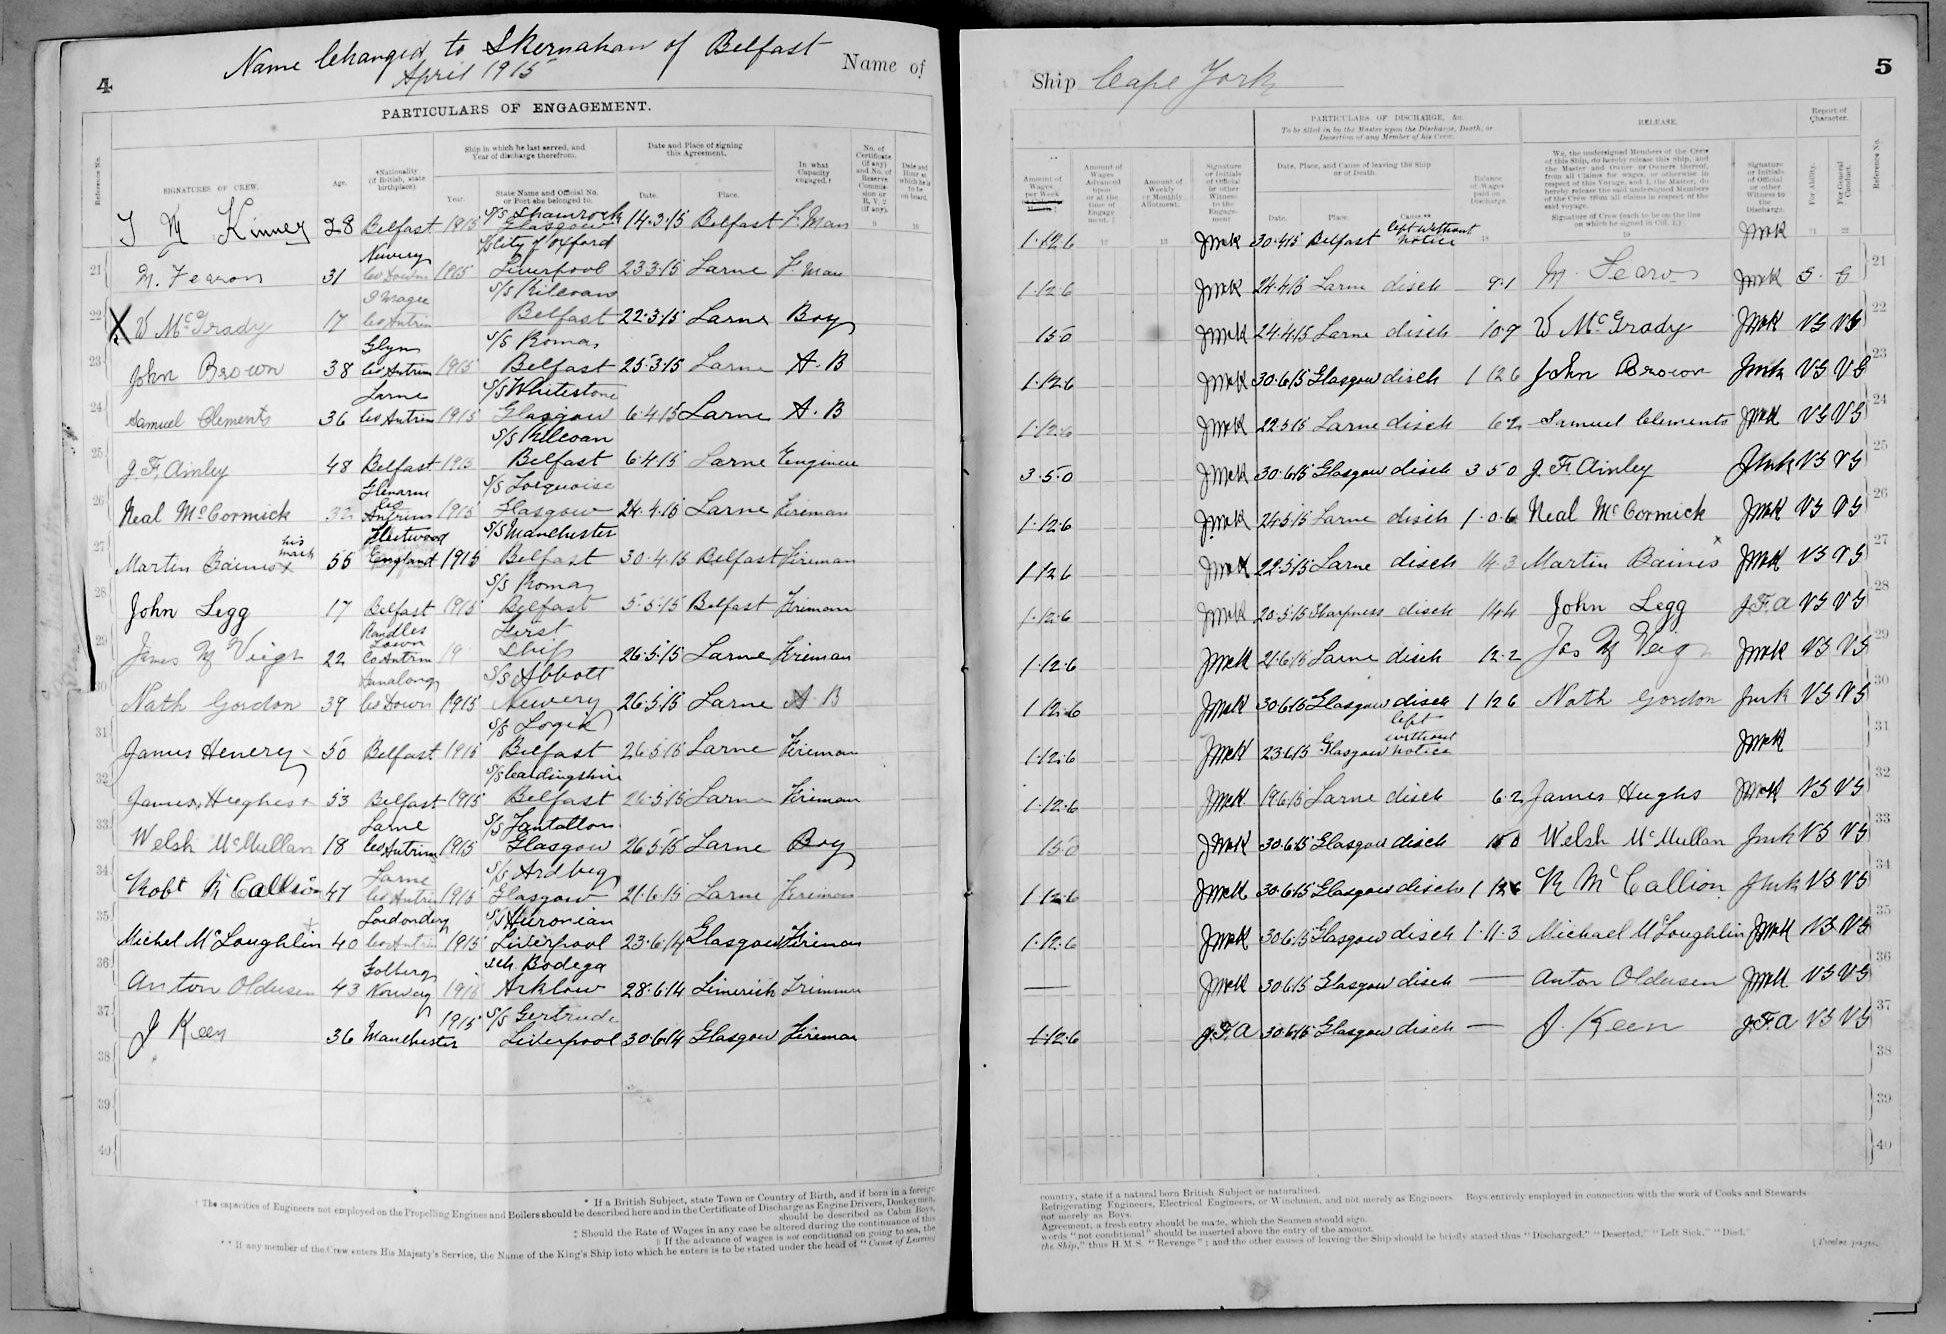 4
Name Changed to Skernahan of Belfast
April 1915
Name of
PARTICULARS OF ENGAGEMENT.
Reference No.
SIGNATURES OF CREW.
Age.
*Nationality (if British, state birthplace).
Ship in which he last served, and Year of discharge therefrom.
Year.
State Name and Official No. or Port she belonged to.
Date and Place of signing this Agreement.
Date.
Place.
In what Capacity engaged.†
No. of Certificate (if any) and No. of Reserve Commission or R.V. 2 (if any).
Date and Hour at which he is to be on board.
J Mc Kinney 28 Belfast 1915 S/S Shamrock Glasgow 14.3.15 Belfast F. Man
21 M. Fearon 31 Newery Co Down 1915 S/S City of Oxford Liverpool 23.3.15 Larne F. Man
22 X W McGrady 17 I Magee Co Antrim S/S Kilcoan Belfast 22.3.15 Larne Boy
23 John Brown 38 Glyn Co Antrim 1915 S/S Roma Belfast 25.3.15 Larne A.B
24 Samuel Clements 36 Larne Co Antrim 1915 S/S Whitestone Glasgow 6.4.15 Larne A.B
25 J. F. Ainley 48 Belfast 1915 S/S Kilcoan Belfast 6.4.15 Larne Engineer
26 Neal McCormick 32 Glenarm Co Antrim 1915 S/S Torquoise Glasgow 24.4.15 Larne Fireman
27 Martin Baines his mark x 55 Fleetwood England 1915 S/S Manchester Belfast 30.4.15 Belfast Fireman
28 John Legg 17 Belfast 1915 S/S Roma Belfast 5.5.15 Belfast Fireman
29 James Mc Veigh 22 Randles Town Co Antrim 19 First Ship 26.5.15 Larne Fireman
30 Nath Gordon 39 Annalong Co Down 1915 S/S Abbott Newery 26.5.15 Larne A B
31 James Henery 50 Belfast 1915 S/S Logik Belfast 26.5.15 Larne Fireman
32 James Hughes 53 Belfast 1915 S/S Belfast 26.5.15 Larne Fireman
33 Welsh McMullan 18 Larne Co Antrim 1915 S/S Tantallon Glasgow 26.5.15 Larne Boy
34 Robt Mc Callion 47 Larne Co Antrim 1915 S/S Ardbeg Glasgow 21.6.15 Larne Fireman
35 Michel McLoughlin 40 Londonderry Co Antrim 1915 S/S Huronian Liverpool 23.6.14 Glasgow Fireman
36 Anton Oldusen 43 Norway 1915 sch Bodega Arklow 28.6.14 Limerick Trimmer
37 J Keen 36 Manchester 1915 S/S Gertrude Liverpool 30.6.14 Glasgow Fireman
38
39
40
* If a British Subject, state Town or Country of Birth, and if born in a foreign
† The capacities of Engineers not employed on the Propelling Engines and Boilers should be described here and in the Certificate of Discharge as Engine Drivers, Donkeymen,
should be described as Cabin Boys,
‡ Should the Rate of Wages in any case be altered during the continuance of this
|| If the advance of wages is not conditional on going to sea, the
** If any member of the Crew enters His Majesty's Service, the Name of the King's Ship into which he enters is to be stated under the head of "Cause of Leaving
Ship Cape York
5
PARTICULARS OF DISCHARGE, &c.
To be filled in by the Master upon the Discharge, Death, or Desertion of any Member of his Crew.
RELEASE.
Report of Character.
Amount of Wages per Week
Amount of Wages Advanced upon or at the time of Engagement.
Amount of Weekly or Monthly Allotment.
Signature or Initials of Official or other Witness to the Engagement
Date, Place, and Cause of leaving the Ship or of Death.
Date.
Place.
Cause.**
Balance of Wages paid on Discharge.
We, the undersigned Members of the Crew of this Ship, do hereby release this Ship, and the Master and Owner or Owners thereof, from all Claims for wages, or otherwise in respect of this Voyage, and I, the Master, do hereby release the said undersigned Members of the Crew from all claims in respect of the said voyage.
Signature of Crew (each to be on the line on which he signed in Col. 2.)
Signature or Initials of Official or other Witness to the Discharge.
For Ability.
For General Conduct.
Reference No.
1.12.6 JMcK 30.4.15 Belfast left without notice JMcK
1.12.6 JMcK 24.4.15 Larne disch 9.1 M. Fearon JMcK G. G 21
15.0 JMcK 24.4.15 Larne disch 10.9 W McGrady JMcK VG VG 22
1.12.6 JMcK 30.6.15 Glasgow disch 1 12 6 John Brown JMcK VG VG 23
1.12.6 JMcK 22.5.15 Larne disch 6 2 Samuel Clements JMcK VG VG 24
3.5.0 JMcK 30.6.15 Glasgow disch 3 5 0 J. F. Ainley JMcK VG VG 25
1.12.6 JMcK 24.5.15 Larne disch 1.0.6 Neal McCormick JMcK VG VG 26
1.12.6 JMcK 22.5.15 Larne disch 14.3 Martin Baines x JMcK VG VG 27
1.12.6 JMcK 20.5.15 Sharpness disch 14 4 John Legg J.F.A VG VG 28
1.12.6 JMcK 21.6.15 Larne disch 12.2 Jas Mc Veigh JMcK VG VG 29
1.12.6 JMcK 30.6.15 Glasgow disch 1 12 6 Nath Gordon JMcK VG VG 30
1.12.6 JMcK 23.6.15 Glasgow left without notice JMcK 31
1.12.6 JMcK 19.6.15 Larne disch 6.2 James Hughs JMcK VG VG 32
15.0 JMcK 30.6.15 Glasgow disch 15 0 Welsh McMullan JMcK VG VG 33
1.12.6 JMcK 30.6.15 Glasgow disch 1 12 6 R McCallion JMcK VG VG 34
1.12.6 JMcK 30.6.15 Glasgow disch 1.11.3 Michael McLoughlin JMcK VG VG 35
— JMcK 30.6.15 Glasgow disch — Anton Oldusen JMcK VG VG 36
1.12.6 J.F.A 30.6.15 Glasgow disch — J. Keen J.F.A VG VG 37
38
39
40
country, state if a natural born British Subject or naturalized.
Refrigerating Engineers, Electrical Engineers, or Winchmen, and not merely as Engineers. Boys entirely employed in connection with the work of Cooks and Stewards
not merely as Boys.
Agreement, a fresh entry should be made, which the Seamen should sign.
words "not conditional" should be inserted above the entry of the amount.
the Ship," thus H.M.S. "Revenge"; and the other causes of leaving the Ship should be briefly stated thus "Discharged," "Deserted," "Left Sick," "Died."
[Twelve pages.